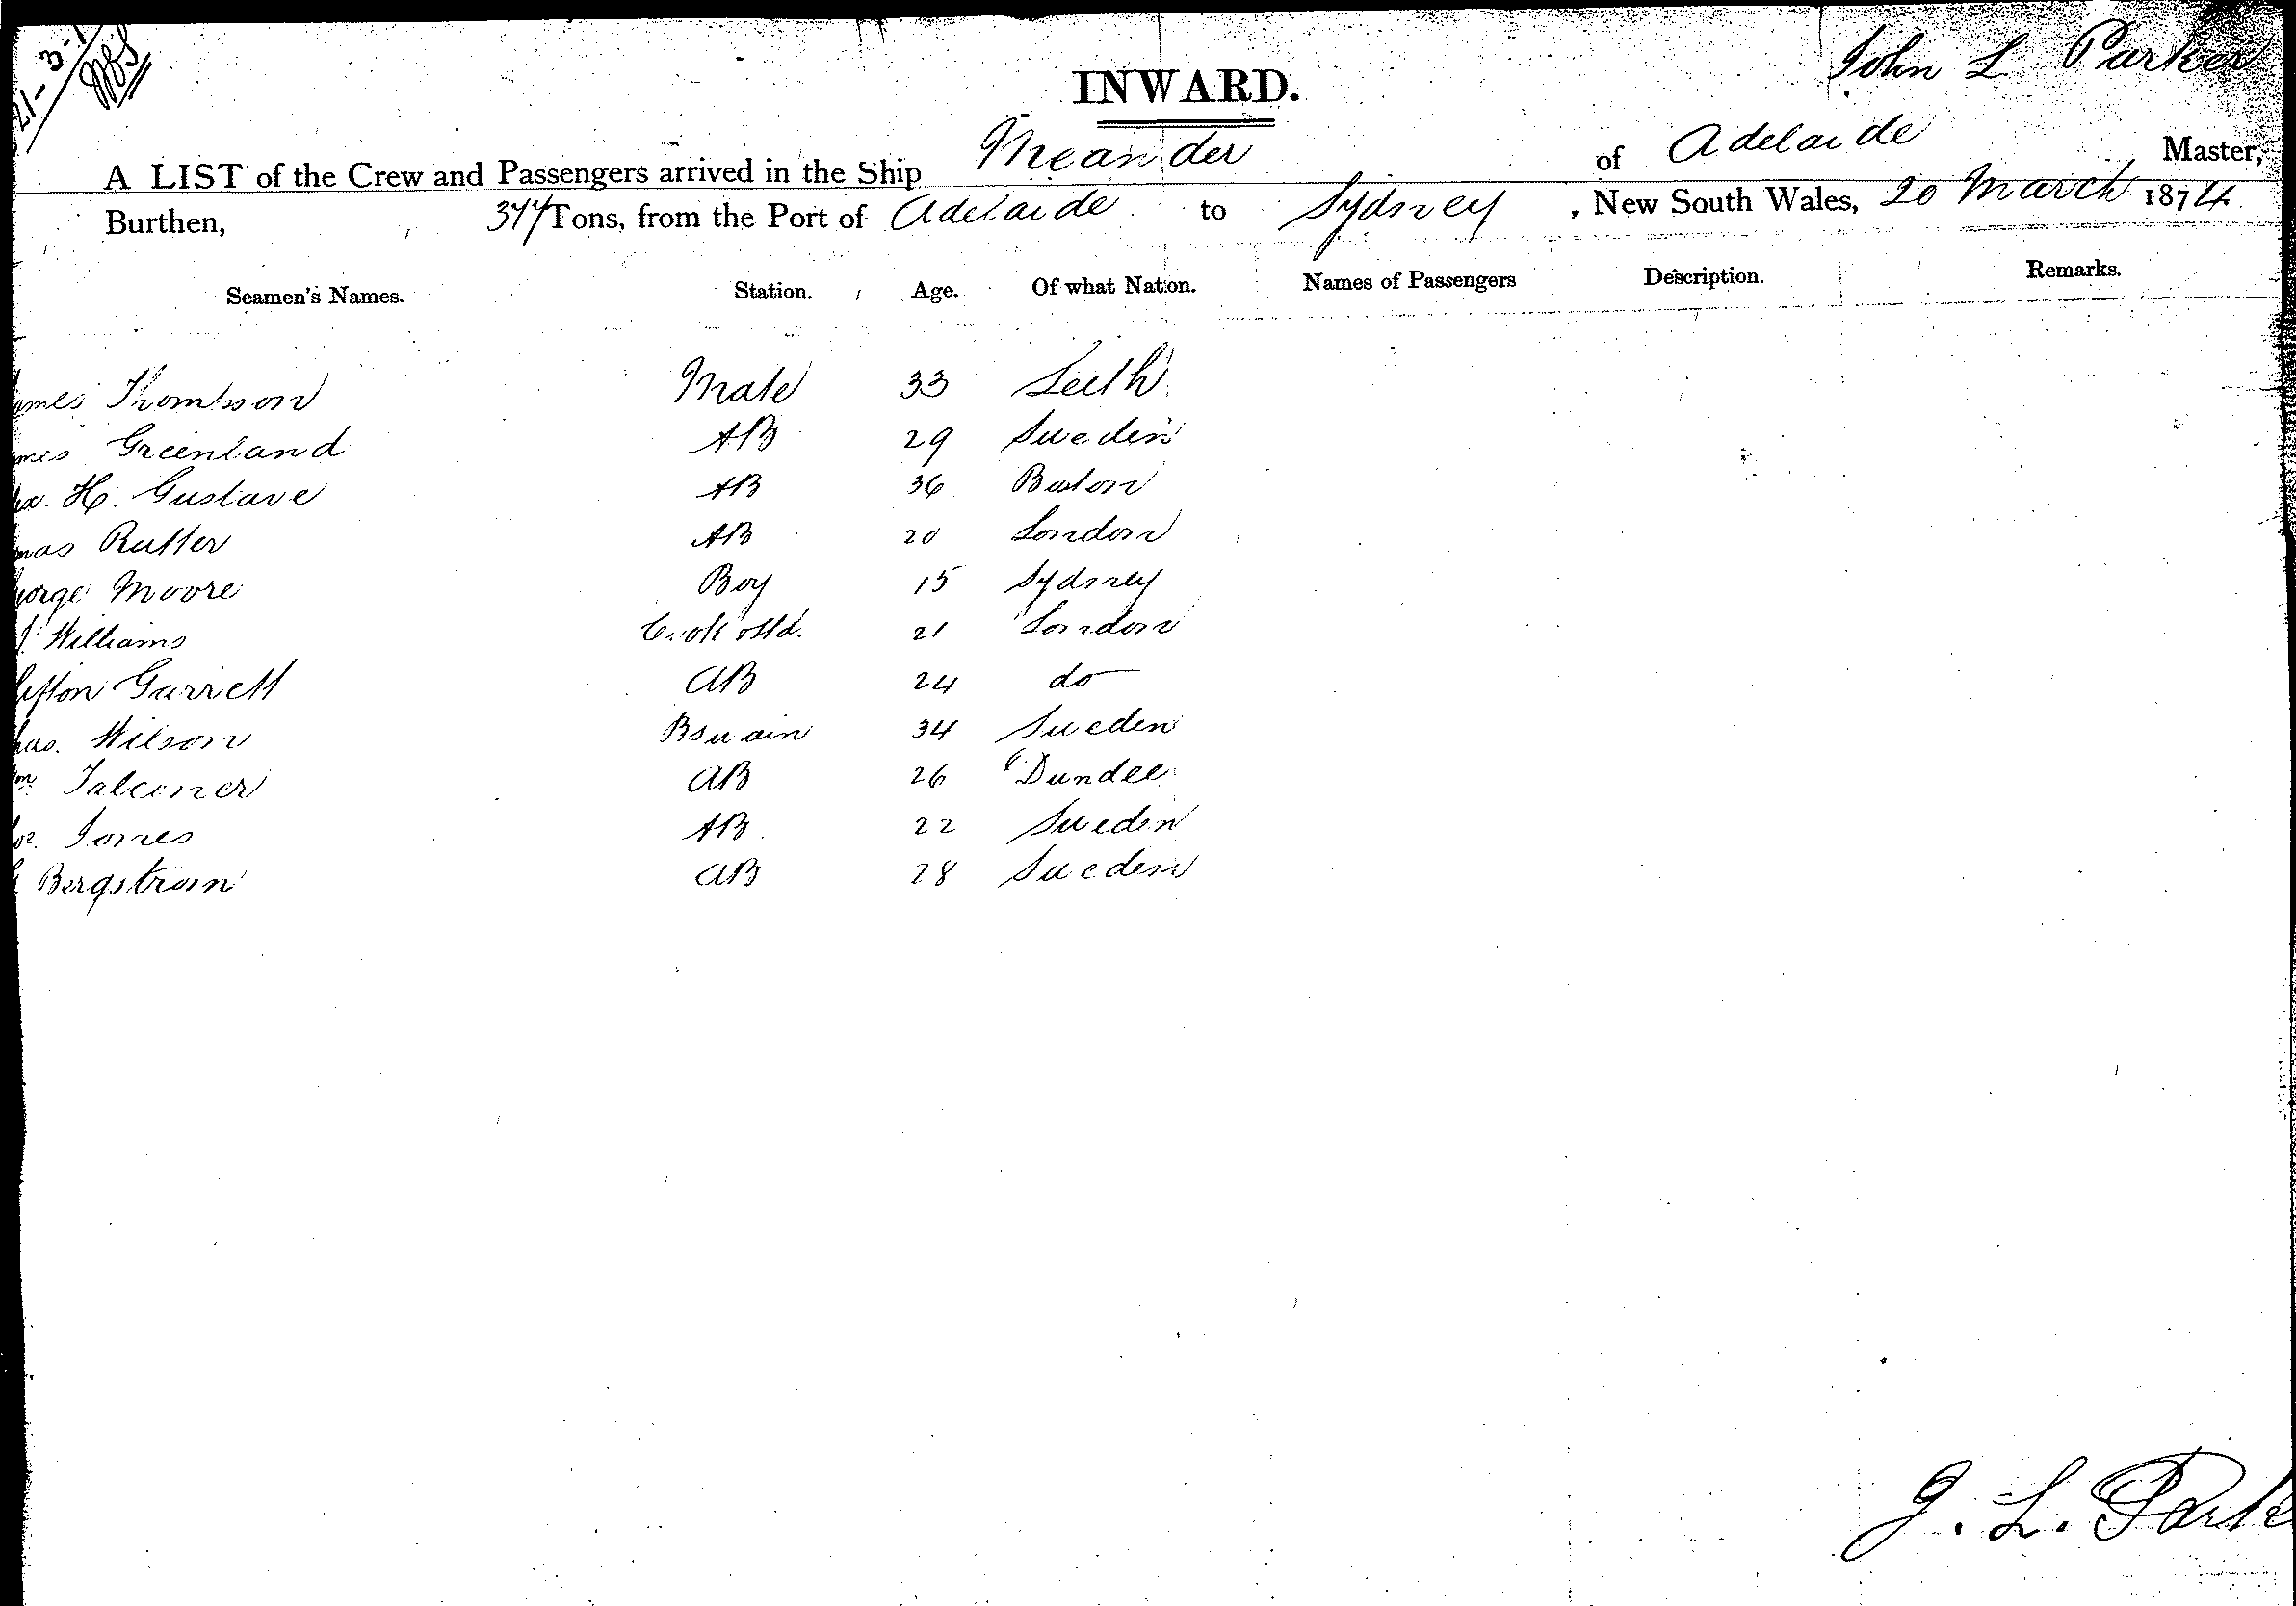 21-3-
INWARD.
John L Parker
A LIST of the Crew and Passengers arrived in the Ship Meander of Adelaide, Master,
Burthen, 377 Tons, from the Port of Adelaide to Sydney, New South Wales, 20 March 1874
Seamen's Names. Station. Age. Of what Nation. Names of Passengers Description. Remarks.
ames Thomson Mate 33 Leith
mes Greenland AB 29 Sweden
ex. H. Gustave AB 36 Boston
mas Rutter AB 20 London
eorge Moore Boy 15 Sydney
J. Williams Cook & Std. 21 London
lifton Garrett AB 24 do
has. Wilson Bswain 34 Sweden
m Falconer AB 26 Dundee
Jones AB 22 Sweden
Bergstrom AB 28 Sweden
J. L. Parke